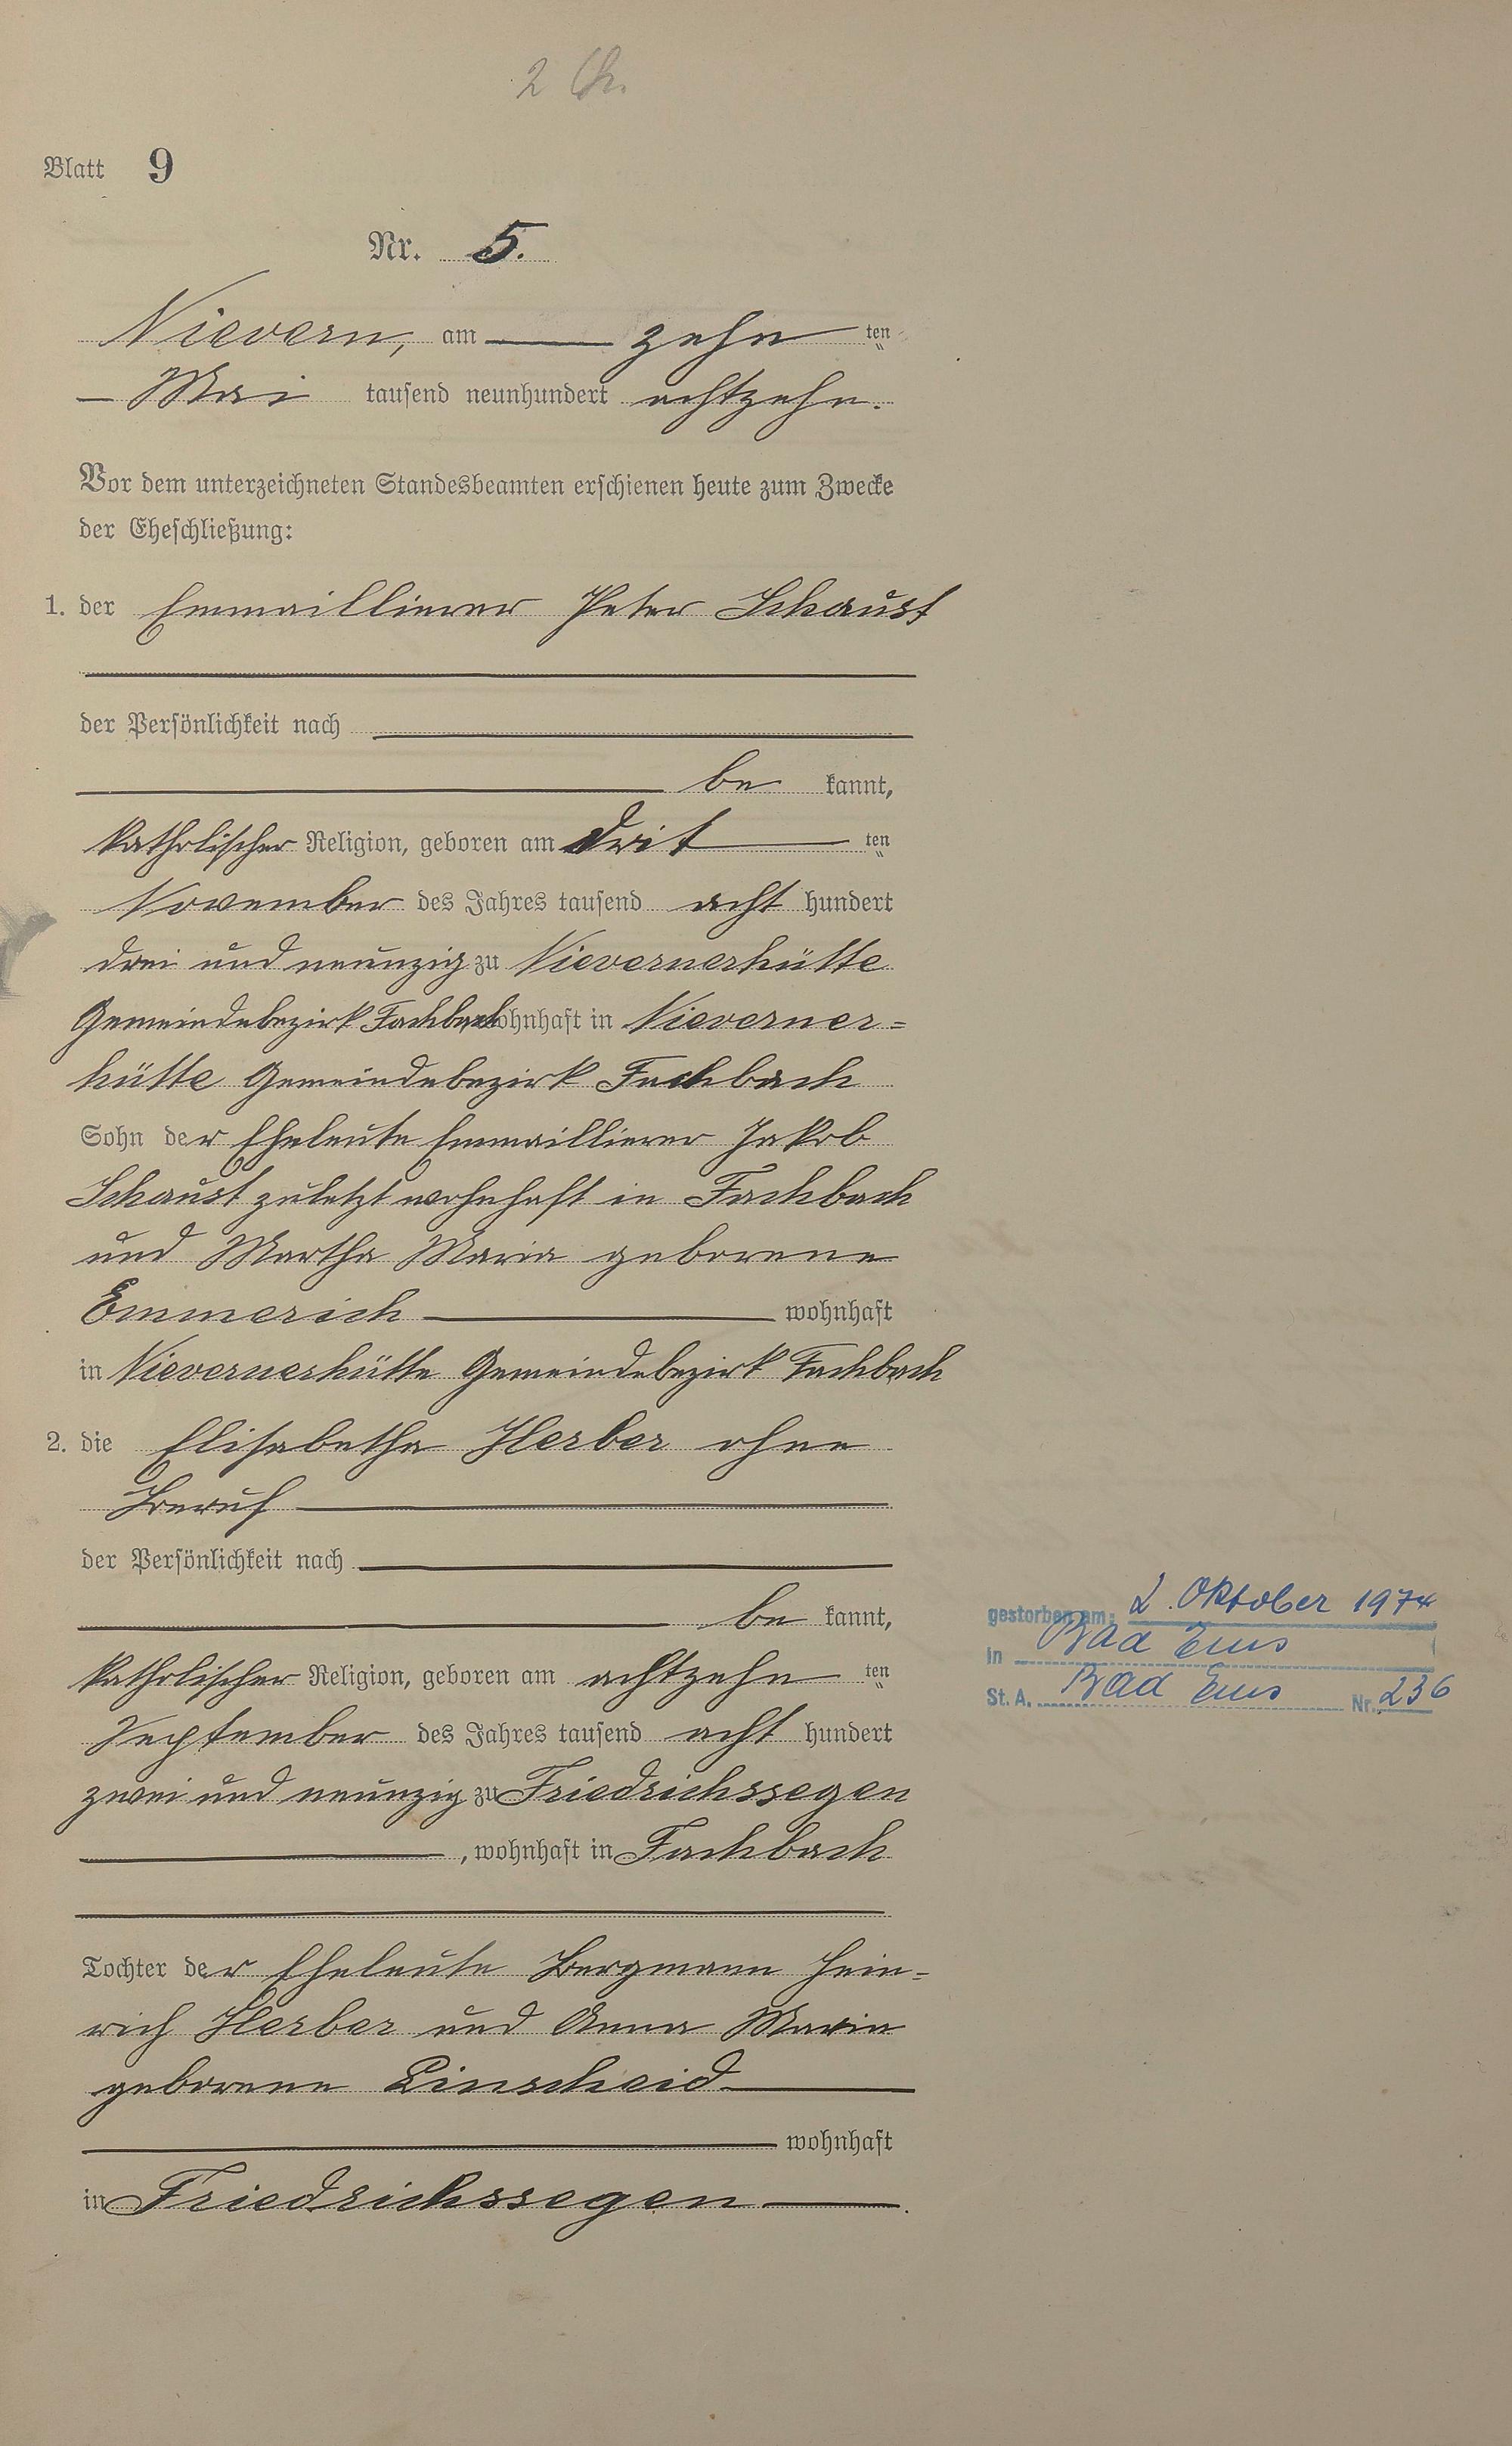 2 Ch.
Blatt 9
Nr. 5.
Nievern, am zehn ten
Mai tausend neunhundert achtzehn.
Vor dem unterzeichneten Standesbeamten erschienen heute zum Zwecke
der Eheschließung:
1. der Emmaillierer Peter Schaust
der Persönlichkeit nach
be kannt,
katholischer Religion, geboren am drit ten
November des Jahres tausend acht hundert
drei und neunzig zu Nievernerhütte
Gemeindebezirk Fachbach wohnhaft in Nieverner=
hütte Gemeindebezirk Fachbach
Sohn der Eheleute Emmaillierer Jakob
Schaust zuletzt wohnhaft in Fachbach
und Martha Maria geborene
Emmerich wohnhaft
in Nievernerhütte Gemeindebezirk Fachbach
2. die Elisabetha Herber ohne
Beruf
der Persönlichkeit nach
be kannt,
katholischer Religion, geboren am achtzehn ten
September des Jahres tausend acht hundert
zwei und neunzig zu Friedrichssegen
, wohnhaft in Fachbach
Tochter der Eheleute Bergmann Hein=
rich Herber und Anna Maria
geborene Linscheid
wohnhaft
in Friedrichssegen.
gestorben am: 2. Oktober 1974
in Bad Ems
St. A. Bad Ems Nr. 236